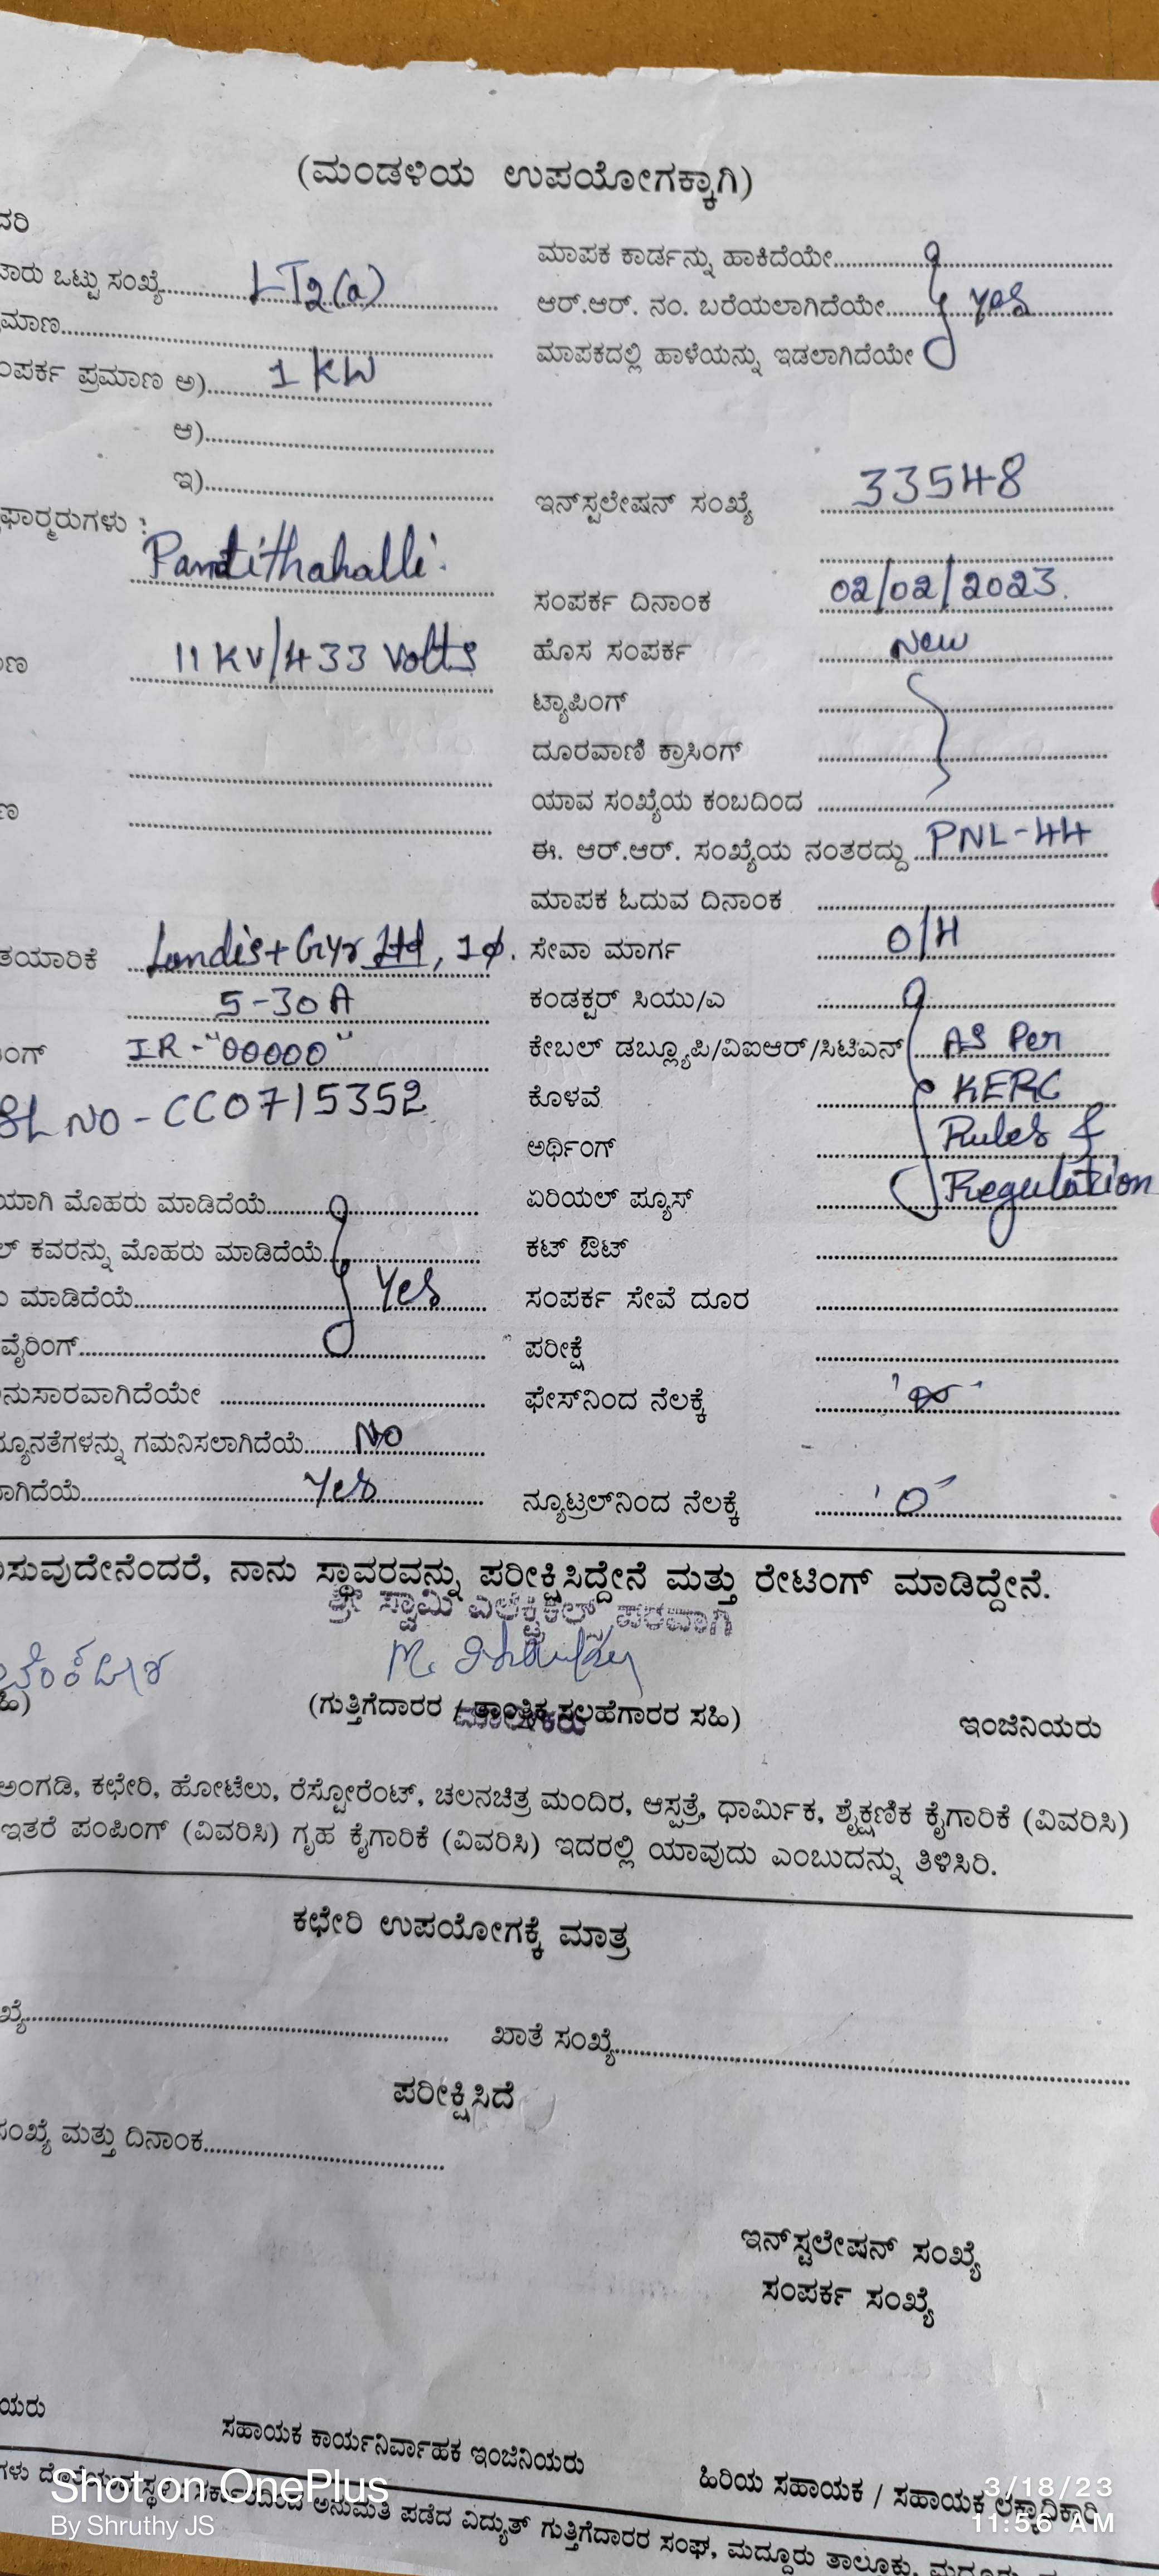 (ಮಂಡಳಿಯ ಉಪಯೋಗಕ್ಕಾಗಿ)
ದರಿ
ಟಾರು ಒಟ್ಟು ಸಂಖ್ಯೆ LT2(a)
ಮಾಣ
ಂಪರ್ಕ ಪ್ರಮಾಣ ಅ) 1 KW
ಆ)
ಇ)
ಫಾರ್ಮರುಗಳು :
Pandithahalli.
ಣ 11 KV/433 Volts
ಣ
ತಯಾರಿಕೆ Landis+Gyr Ltd, 1ø.
5-30 A
ಂಗ್ IR-"00000"
SL NO - CC0715352
ಯಾಗಿ ಮೊಹರು ಮಾಡಿದೆಯೆ
ಲ್ ಕವರನ್ನು ಮೊಹರು ಮಾಡಿದೆಯೆ
ು ಮಾಡಿದೆಯೆ Yes
ವೈರಿಂಗ್
ನುಸಾರವಾಗಿದೆಯೇ
ನ್ಯೂನತೆಗಳನ್ನು ಗಮನಿಸಲಾಗಿದೆಯೆ No
ಾಗಿದೆಯೆ Yes
ಮಾಪಕ ಕಾರ್ಡನ್ನು ಹಾಕಿದೆಯೇ
ಆರ್.ಆರ್. ನಂ. ಬರೆಯಲಾಗಿದೆಯೇ yes
ಮಾಪಕದಲ್ಲಿ ಹಾಳೆಯನ್ನು ಇಡಲಾಗಿದೆಯೇ
ಇನ್‌ಸ್ಟಲೇಷನ್ ಸಂಖ್ಯೆ 33548
ಸಂಪರ್ಕ ದಿನಾಂಕ 02/02/2023.
ಹೊಸ ಸಂಪರ್ಕ New
ಟ್ಯಾಪಿಂಗ್
ದೂರವಾಣಿ ಕ್ರಾಸಿಂಗ್
ಯಾವ ಸಂಖ್ಯೆಯ ಕಂಬದಿಂದ
ಈ. ಆರ್.ಆರ್. ಸಂಖ್ಯೆಯ ನಂತರದ್ದು PNL-44
ಮಾಪಕ ಓದುವ ದಿನಾಂಕ
ಸೇವಾ ಮಾರ್ಗ O/H
ಕಂಡಕ್ಟರ್ ಸಿಯು/ಎ
ಕೇಬಲ್ ಡಬ್ಲ್ಯೂಪಿ/ವಿಐಆರ್/ಸಿಟಿಎಸ್ AS Per
ಕೊಳವೆ KERC
ಅರ್ಥಿಂಗ್ Rules &
ಏರಿಯಲ್ ಫ್ಯೂಸ್ Regulation
ಕಟ್ ಔಟ್
ಸಂಪರ್ಕ ಸೇವೆ ದೂರ
ಪರೀಕ್ಷೆ
ಫೇಸ್‌ನಿಂದ ನೆಲಕ್ಕೆ
ನ್ಯೂಟ್ರಲ್‌ನಿಂದ ನೆಲಕ್ಕೆ '0'
ಿಸುವುದೇನೆಂದರೆ, ನಾನು ಸ್ಥಾವರವನ್ನು ಪರೀಕ್ಷಿಸಿದ್ದೇನೆ ಮತ್ತು ರೇಟಿಂಗ್ ಮಾಡಿದ್ದೇನೆ.
ಶ್ರೀ ಸ್ವಾಮಿ ಎಲೆಕ್ಟ್ರಿಕಲ್ಸ್ ಪರವಾಗಿ
ಹಿ) (ಗುತ್ತಿಗೆದಾರರ / ತಾಂತ್ರಿಕ ಸಲಹೆಗಾರರ ಸಹಿ) ಇಂಜಿನಿಯರು
ಮಾಲೀಕರು
ಅಂಗಡಿ, ಕಛೇರಿ, ಹೋಟೆಲು, ರೆಸ್ಟೋರೆಂಟ್, ಚಲನಚಿತ್ರ ಮಂದಿರ, ಆಸ್ಪತ್ರೆ, ಧಾರ್ಮಿಕ, ಶೈಕ್ಷಣಿಕ ಕೈಗಾರಿಕೆ (ವಿವರಿಸಿ)
ಇತರೆ ಪಂಪಿಂಗ್ (ವಿವರಿಸಿ) ಗೃಹ ಕೈಗಾರಿಕೆ (ವಿವರಿಸಿ) ಇದರಲ್ಲಿ ಯಾವುದು ಎಂಬುದನ್ನು ತಿಳಿಸಿರಿ.
ಕಛೇರಿ ಉಪಯೋಗಕ್ಕೆ ಮಾತ್ರ
ಖ್ಯೆ ಖಾತೆ ಸಂಖ್ಯೆ
ಪರೀಕ್ಷಿಸಿದೆ
ಸಂಖ್ಯೆ ಮತ್ತು ದಿನಾಂಕ
ಇನ್‌ಸ್ಟಲೇಷನ್ ಸಂಖ್ಯೆ
ಸಂಪರ್ಕ ಸಂಖ್ಯೆ
ಯರು
ಸಹಾಯಕ ಕಾರ್ಯನಿರ್ವಾಹಕ ಇಂಜಿನಿಯರು
ಹಿರಿಯ ಸಹಾಯಕ / ಸಹಾಯಕ ಲೆಕ್ಕಾಧಿಕಾರಿ
ಗಳು ದೊರೆಯುವ ಸ್ಥಳ : ಸರ್ಕಾರದಿಂದ ಅನುಮತಿ ಪಡೆದ ವಿದ್ಯುತ್ ಗುತ್ತಿಗೆದಾರರ ಸಂಘ, ಮದ್ದೂರು ತಾಲೂಕು,
Shot on OnePlus
By Shruthy JS
3/18/23
11:56 AM